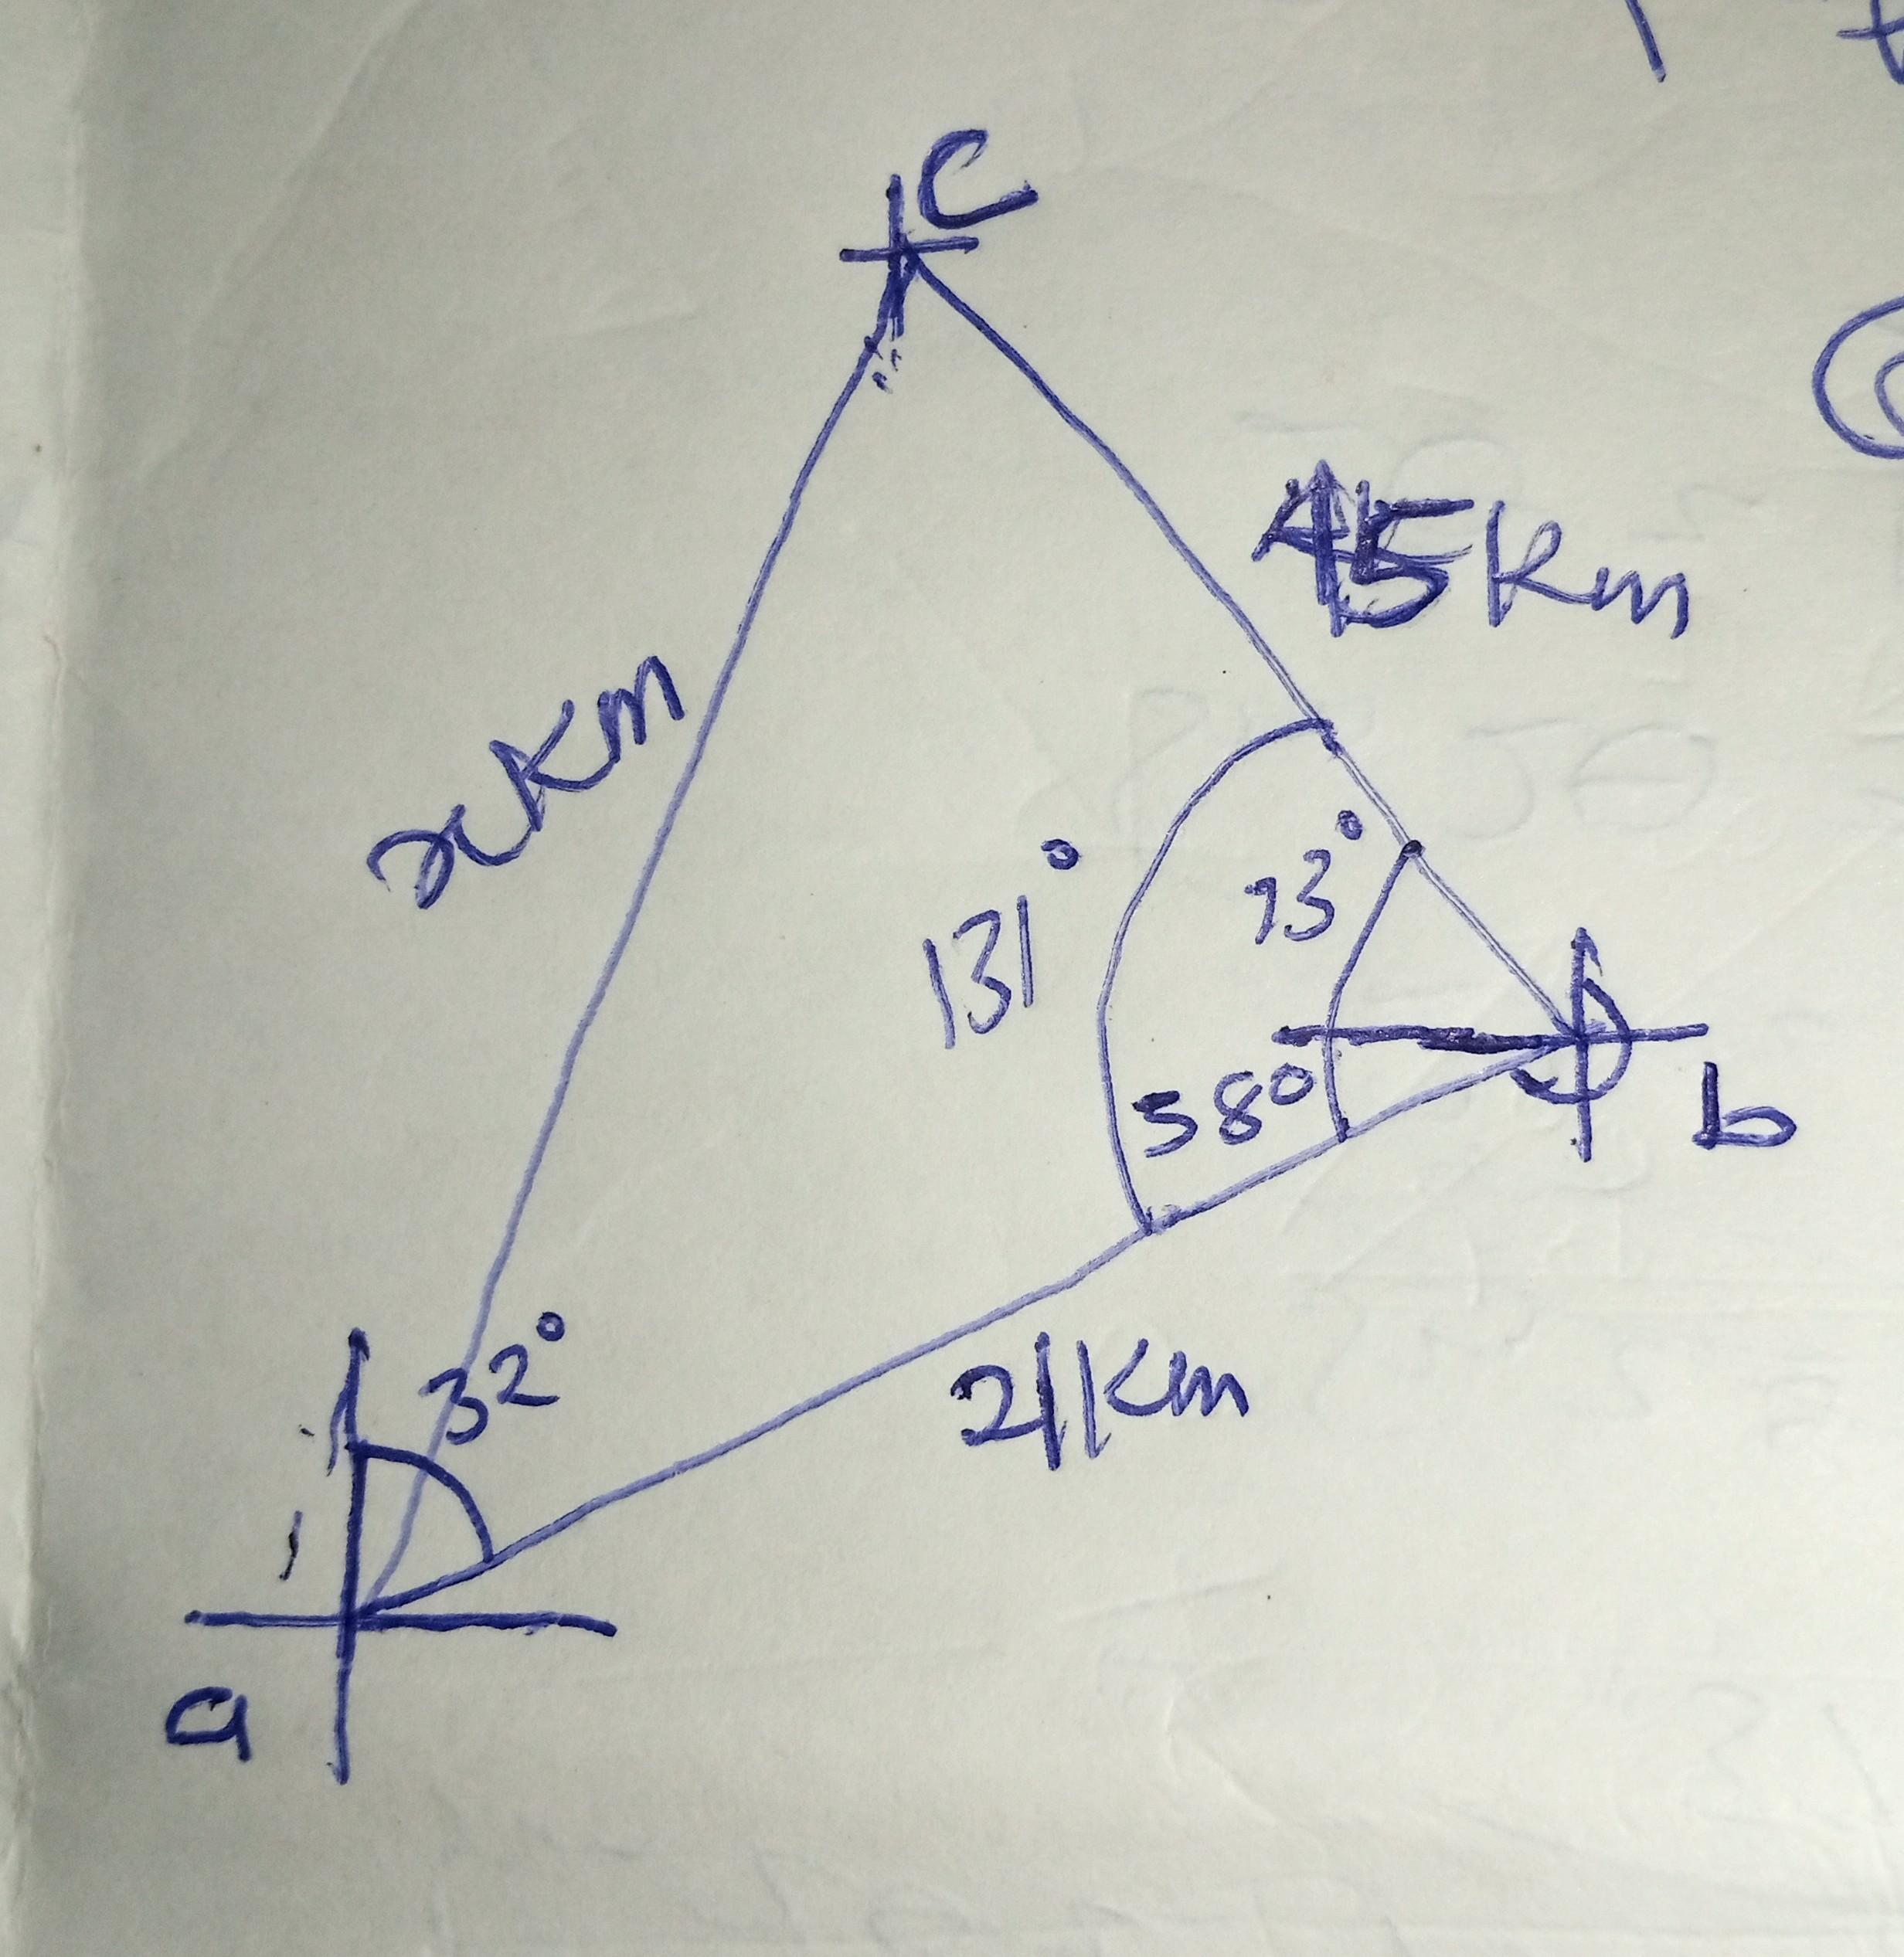 C
45 Km
x Km
131°
73°
58°
b
21 Km
32°
a